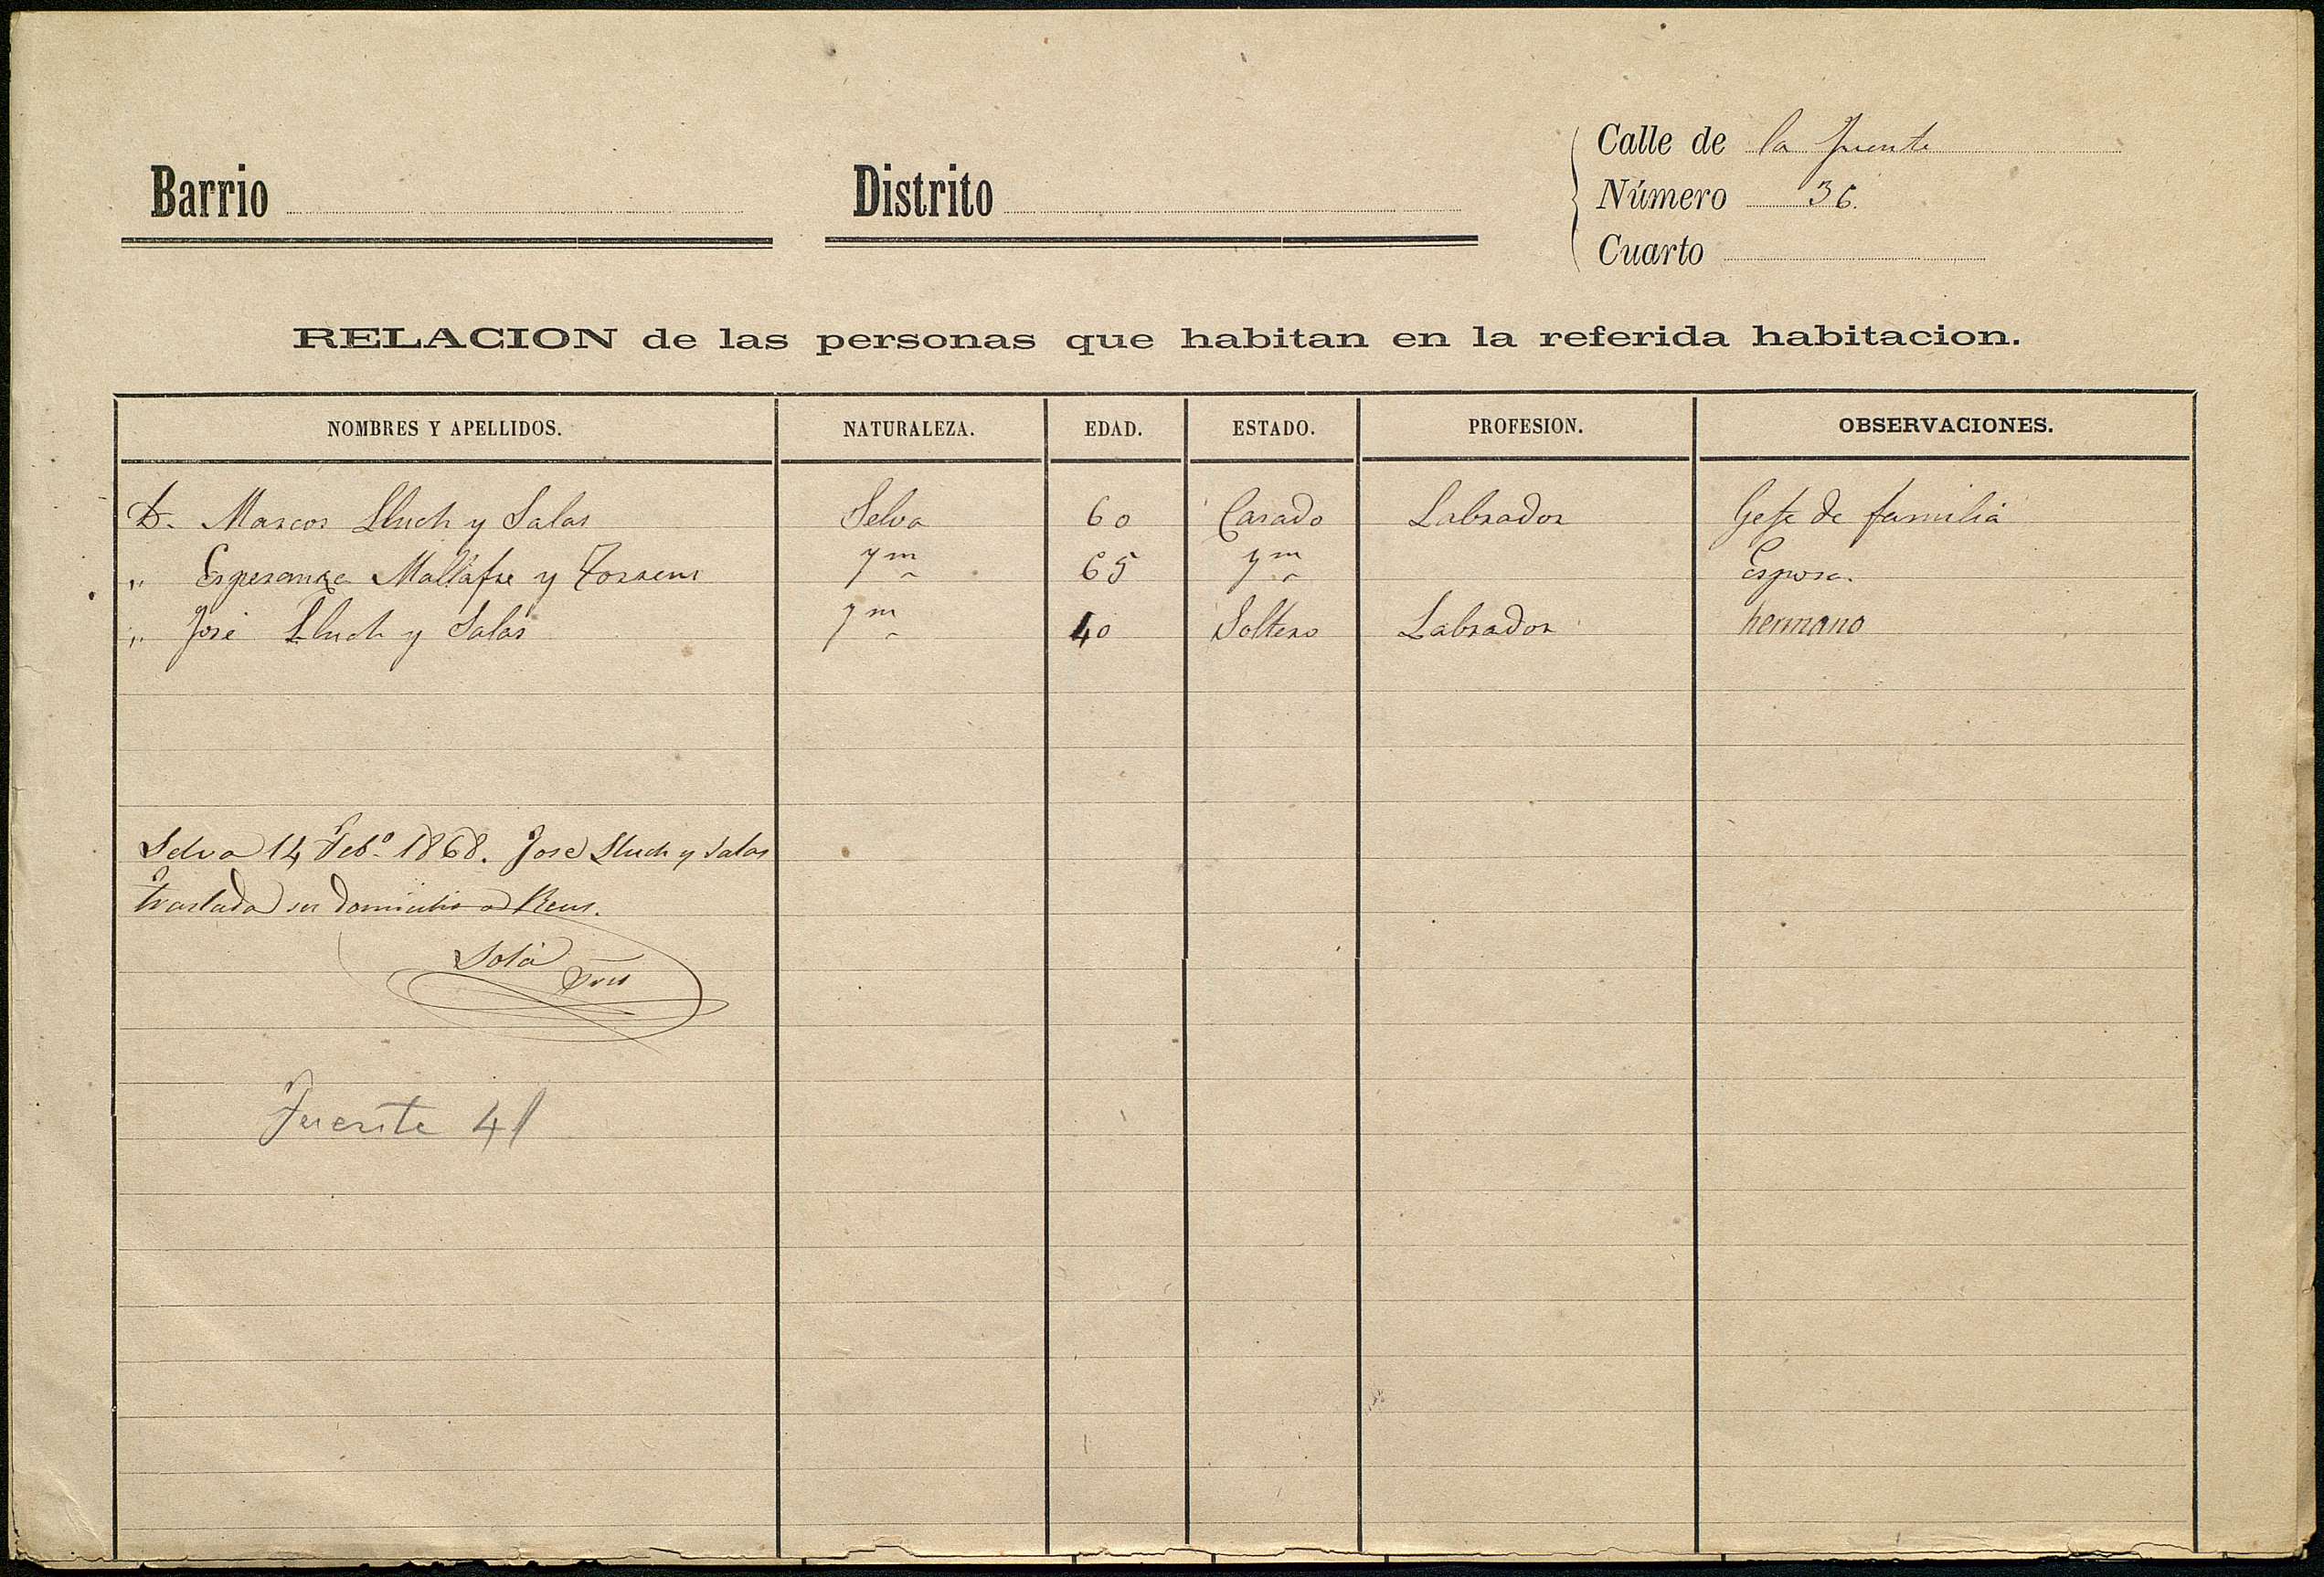 Calle de la fuente
Barrio Distrito Número 36.
Cuarto
RELACION de las personas que habitan en la referida habitacion.
NOMBRES Y APELLIDOS. NATURALEZA. EDAD. ESTADO. PROFESION. OBSERVACIONES.
D. Marcos Lluch y Salas Selva 60 Casado Labrador Gefe de familia
" Esperanza Mallafre y Torrens Ym 65 Ym Esposa.
" José Lluch y Salas Ym 40 Soltero Labrador hermano
Selva 14 Febº 1868. José Lluch y Salas
traslada su domicilio a Reus.
Solá
Fuente 41